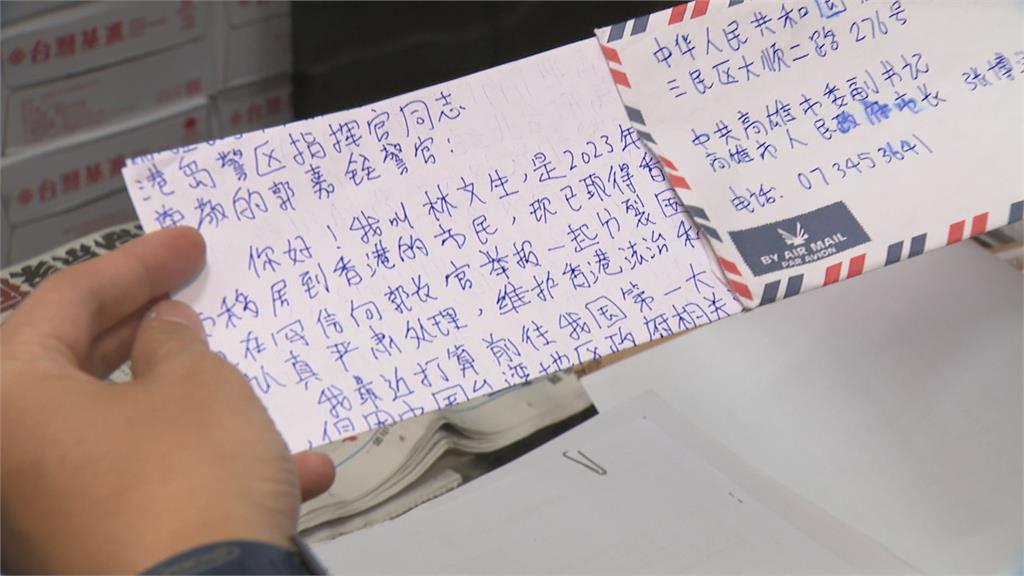 台灣基進
台灣基進
台灣基進
港岛警区指挥官同志
尊敬的郭嘉铨警官:
你好!我叫林文生,是2023年
移居到香港的市民,现已取得香
在写信向郭长官举报一起分裂国
认真严肃处理,维护香港法治和
我最近打算前往我国第一大
,但因中国台湾地区政府相关
中华人民共和国
三民区大顺二路276号
中共高雄市委副书记
高雄市人民政府市长
张博洋
电话: 073453641
BY AIR MAIL
PAR AVION